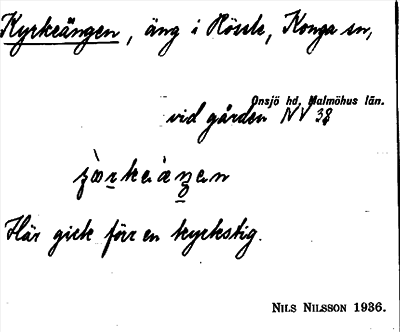 Kyrkeängen, äng i Hössle, Konga sn,
Onsjö hd, Malmöhus län.
vid gården NV 38
Här gick förr en kyrkstig.
NILS NILSSON 1936.